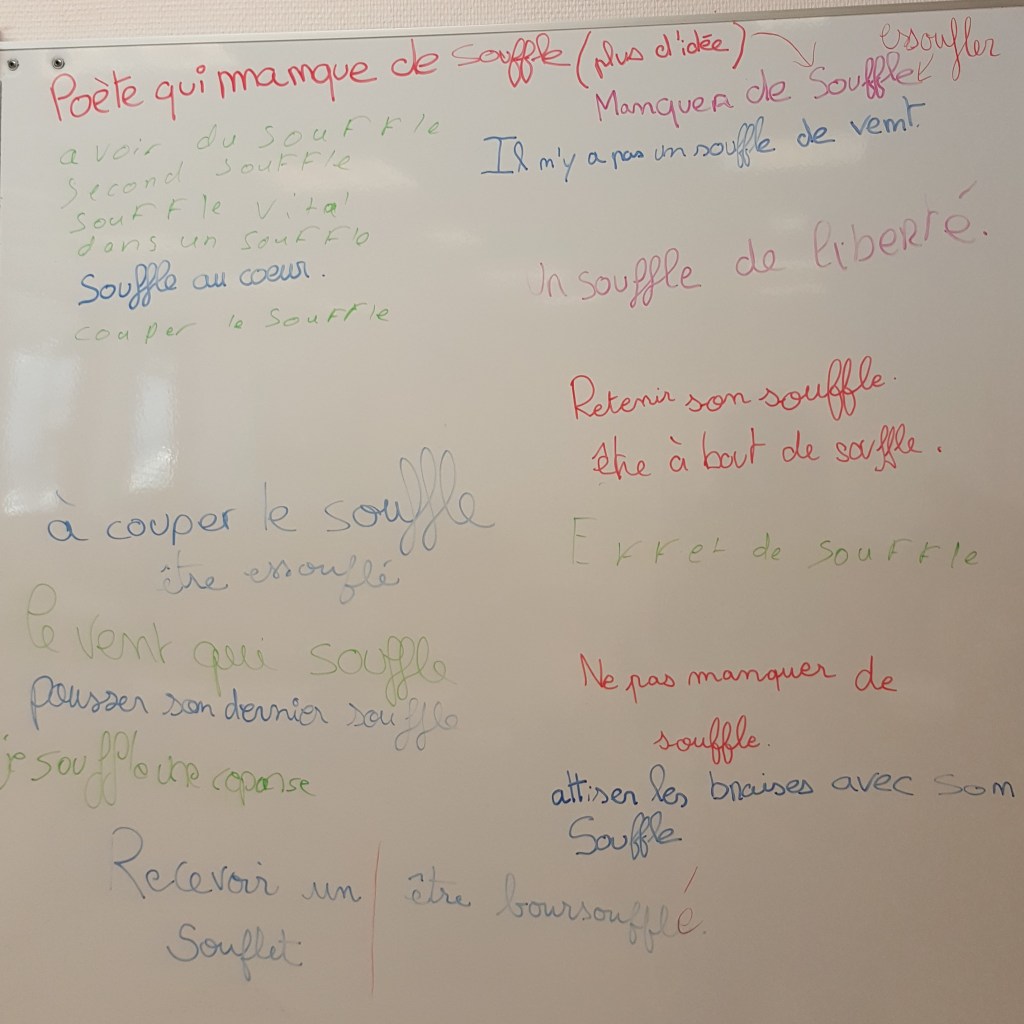 Poète qui manque de souffle (plus d'idée)
essoufler
Manquer de Souffle
Il n'y a pas un souffle de vent.
avoir du souffle
Second souffle
souffle vital
dans un souffle
Souffle au coeur.
couper le souffle
Un souffle de liberté.
Retenir son souffle.
être à bout de souffle.
à couper le souffle
être essouflé
Effet de souffle
le vent qui souffle
pousser son dernier souffle
je souffle une reponse
Ne pas manquer de
souffle.
attiser les braises avec son
Souffle
Recevoir un
Souflet
être boursoufflé.